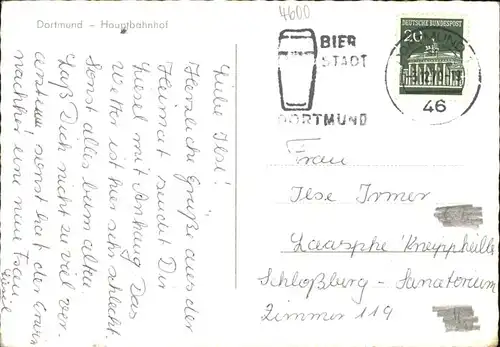 Dortmund - Hauptbahnhof
4600
BIER
STADT
DORTMUND
DEUTSCHE BUNDESPOST
20
46
Liebe Ilse!
Herzliche Grüße aus der
Heimat sendet Dir
Liesel mit Anhang. Das
Wetter ist hier sehr schlecht.
Sonst alles beim alten
Laß Dich nicht zu viel ver-
sonst hat der
nachher eine neue Frau
Liesel
Frau
Ilse Irmer
Laasphe Kneippheilb
Schloßburg - Sanatorium
Zimmer 119